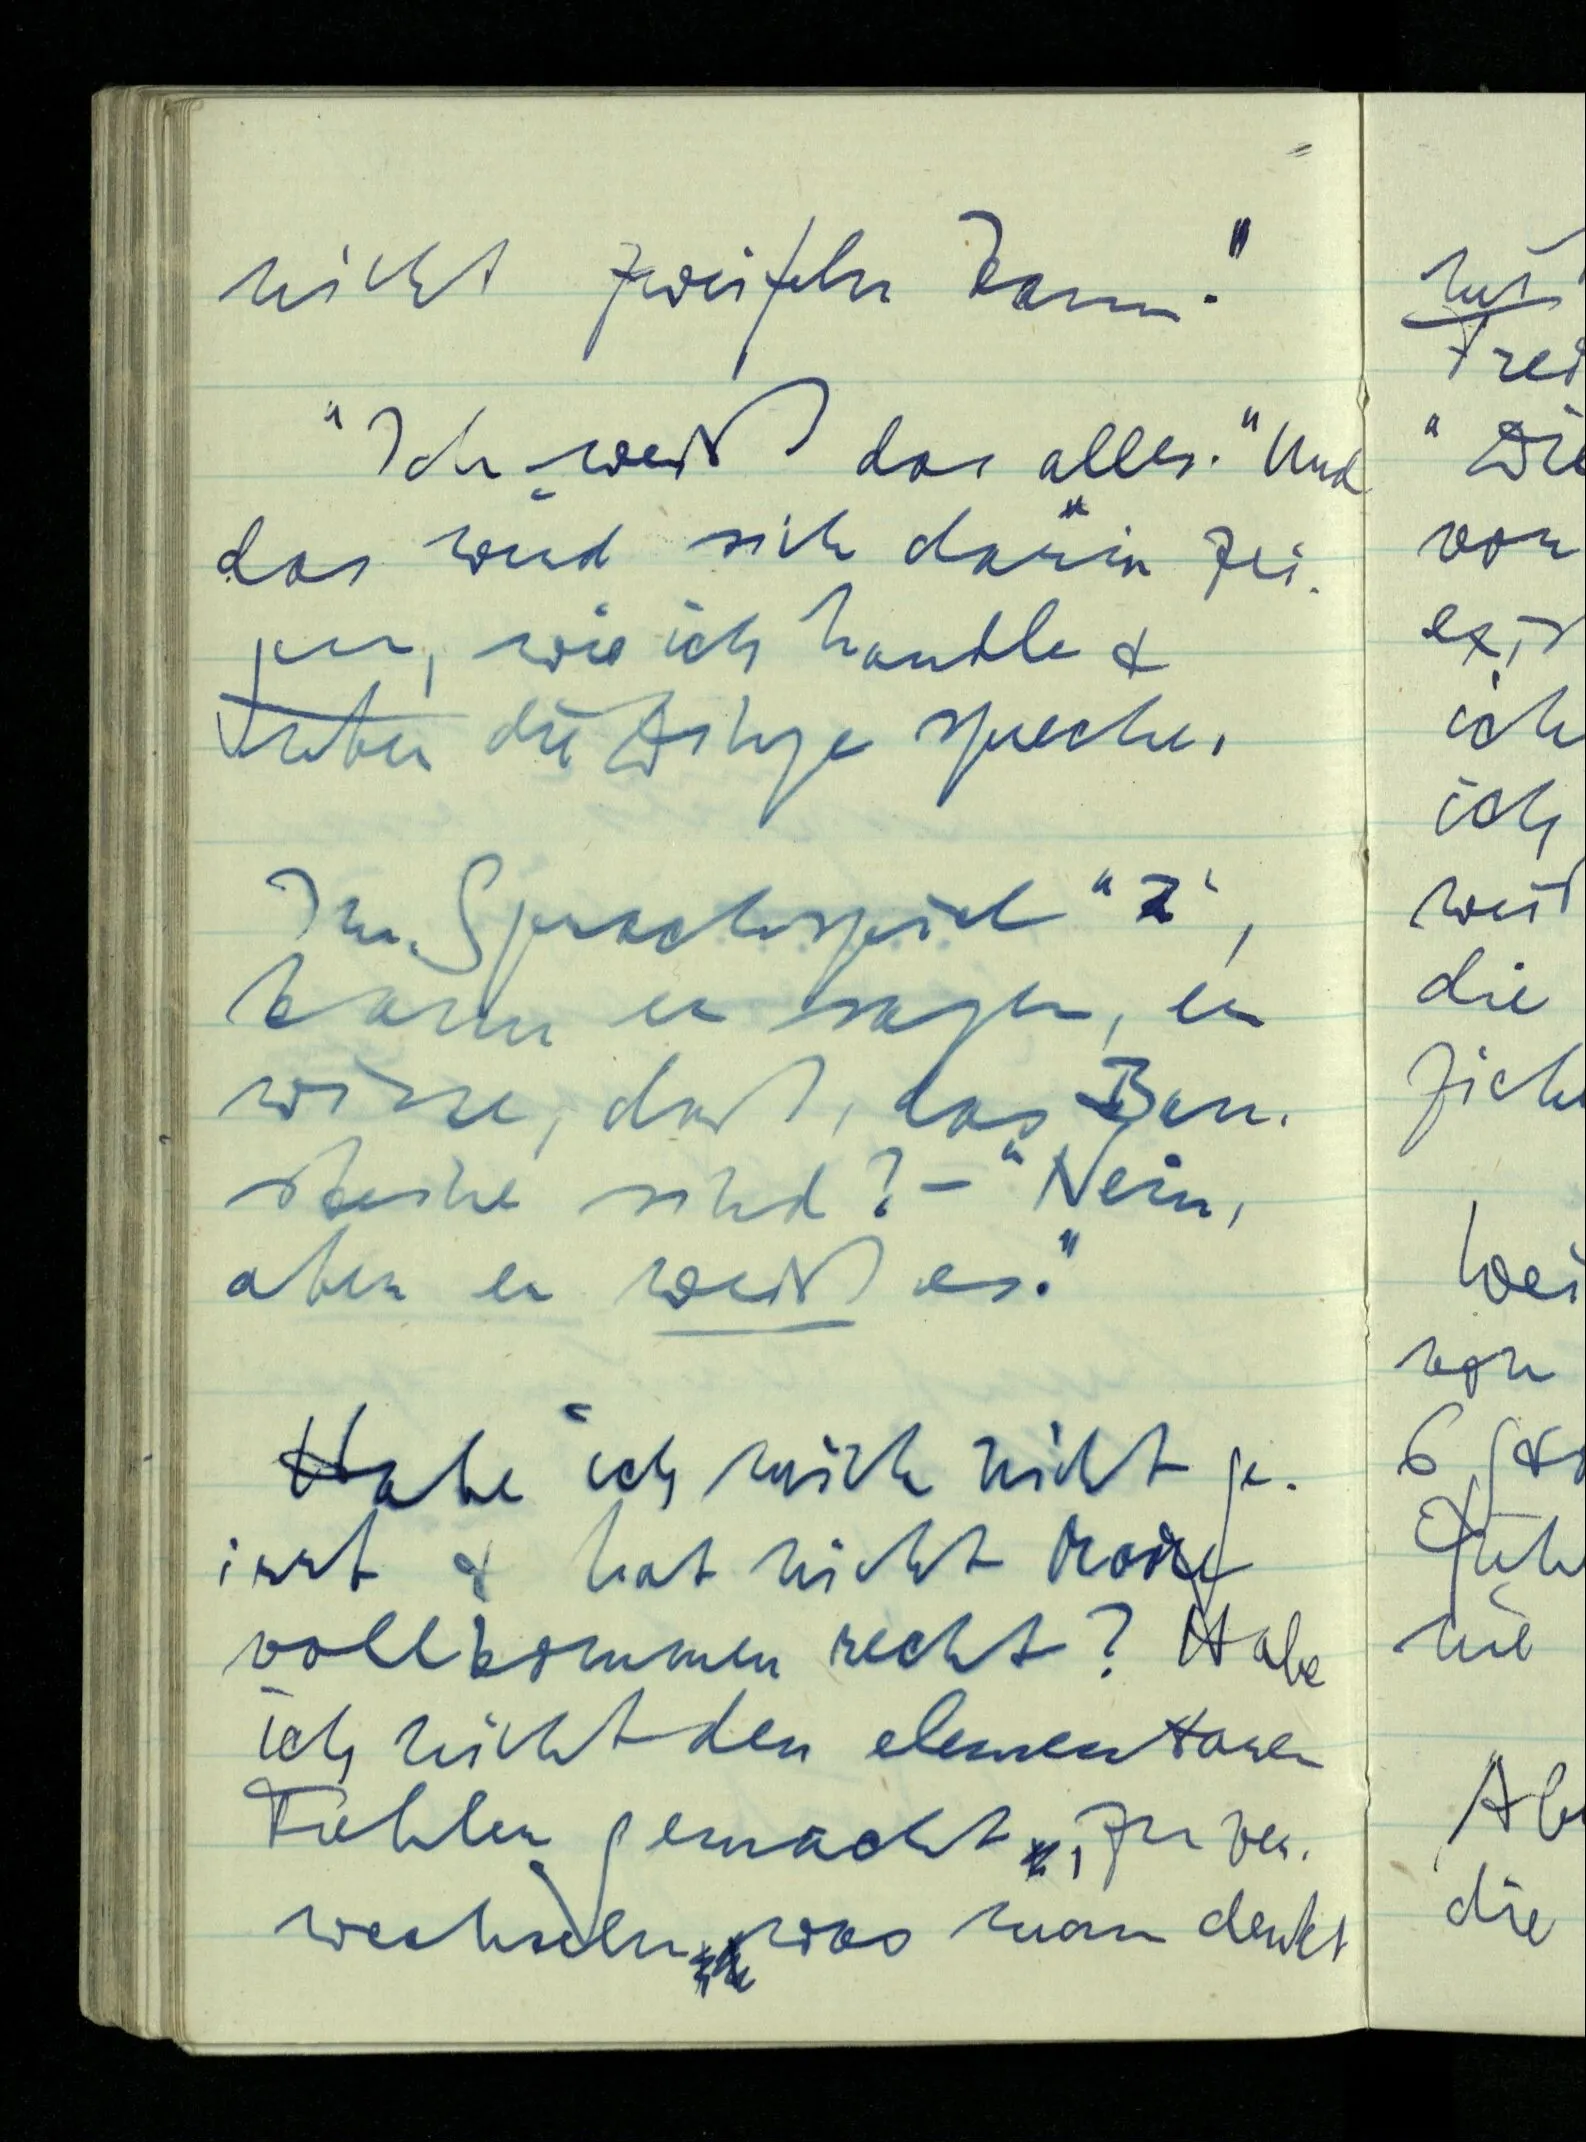 nicht zweifeln kann."
"Ich weiß das alles." Und
das wird sich darin zei-
gen, wie ich handle &
über die Dinge spreche.
Im Sprachspiel "2",
kann er sagen, er
wisse, daß, das Bau-
steine sind? – "Nein,
aber er weiß es."
Habe ich mich nicht ge-
irrt & hat nicht Moore
vollkommen recht? Habe
ich nicht den elementaren
Fehler gemacht, zu ver-
wechseln was man denkt
"Die
von
ich
ich
die
von
nie
die